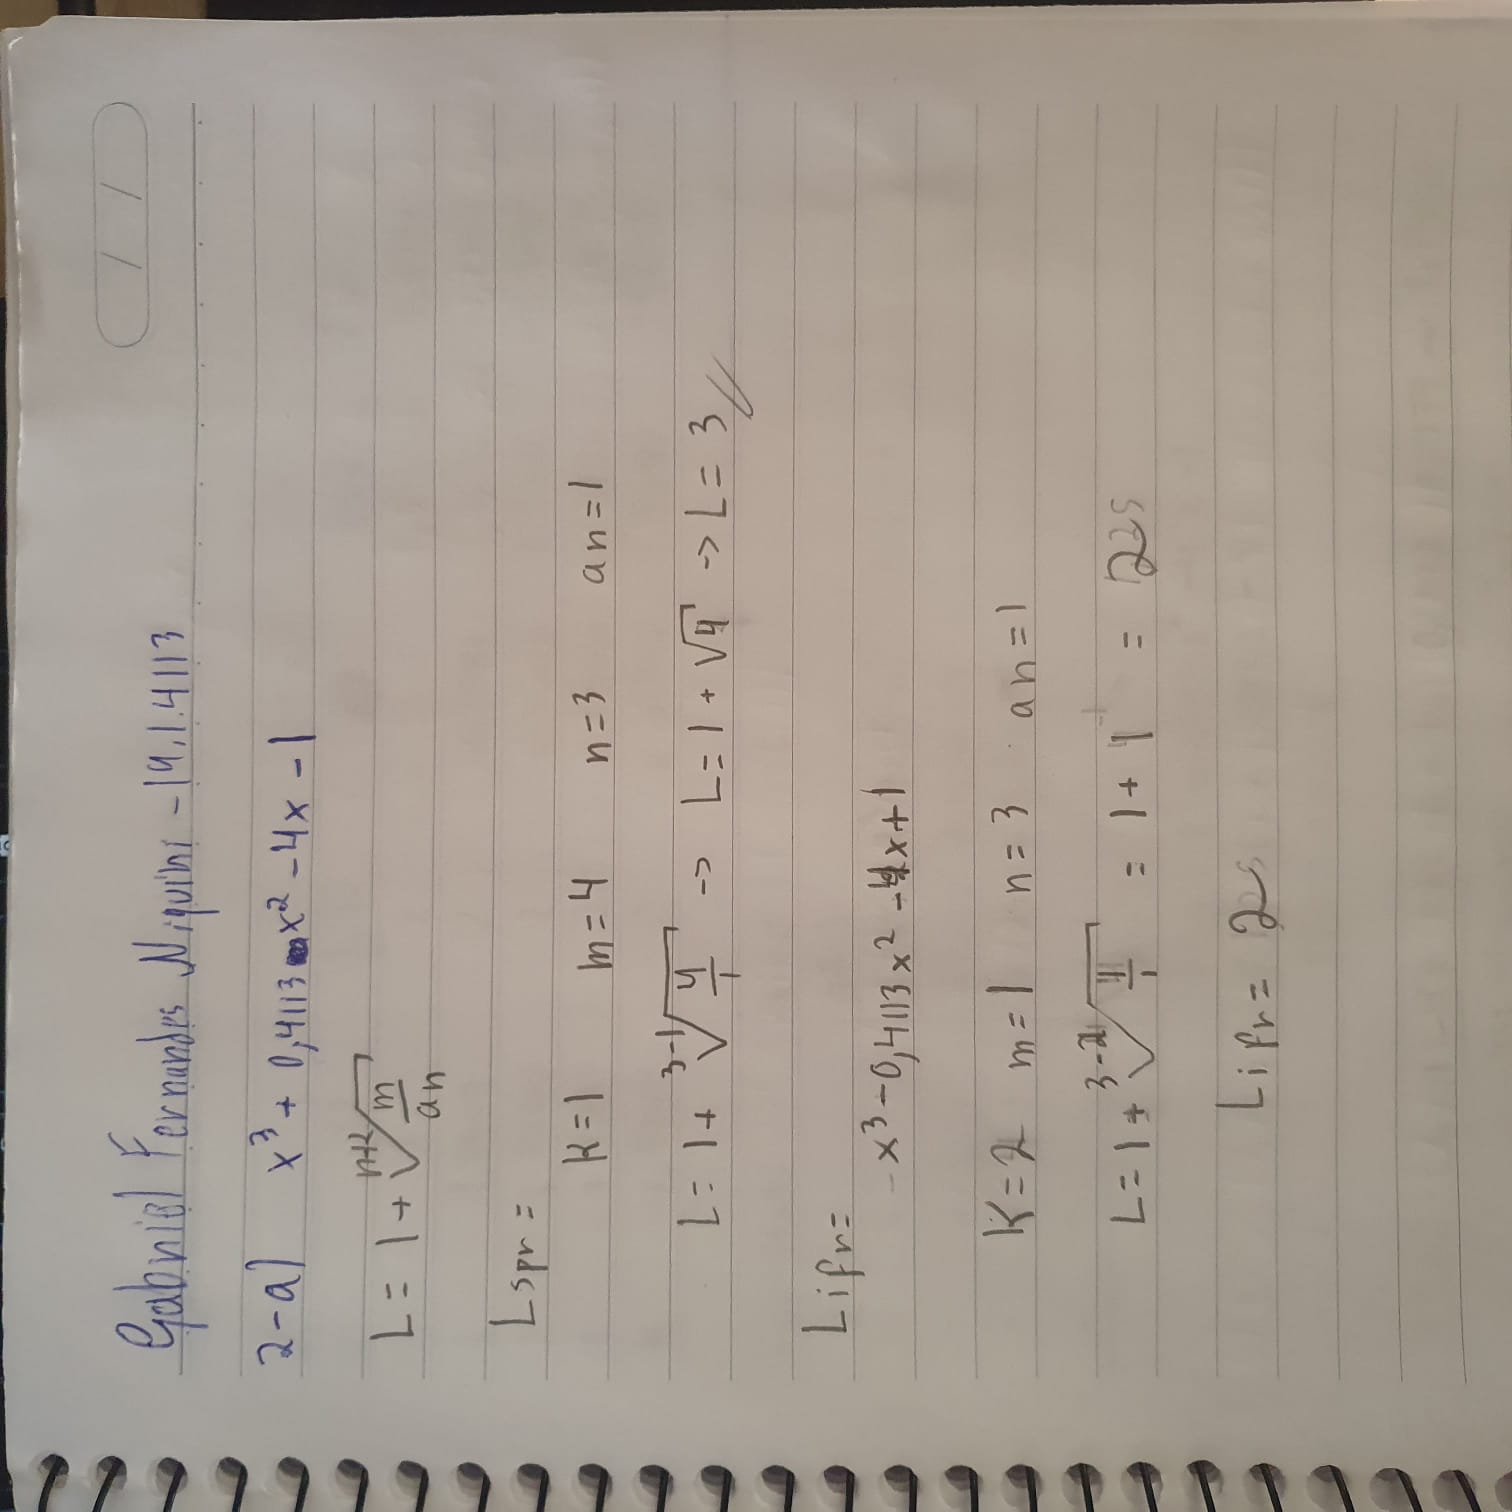 Gabriel Fernandes Niquini - 19.1.4113
2-a) x³ + 0,4113 x² - 4x - 1
L = 1 + ⁿ⁻ᵏ√(m/an)
Lspr =
K=1 m=4 n=3 an=1
L = 1 + ³⁻¹√(4/1) -> L = 1 + √4 -> L = 3
Lifr=
-x³ - 0,4113x² - 4x + 1
K=2 m=1 n=3 an=1
L = 1 + ³⁻²√ = 1 + 1 = 2
Lifr = 2